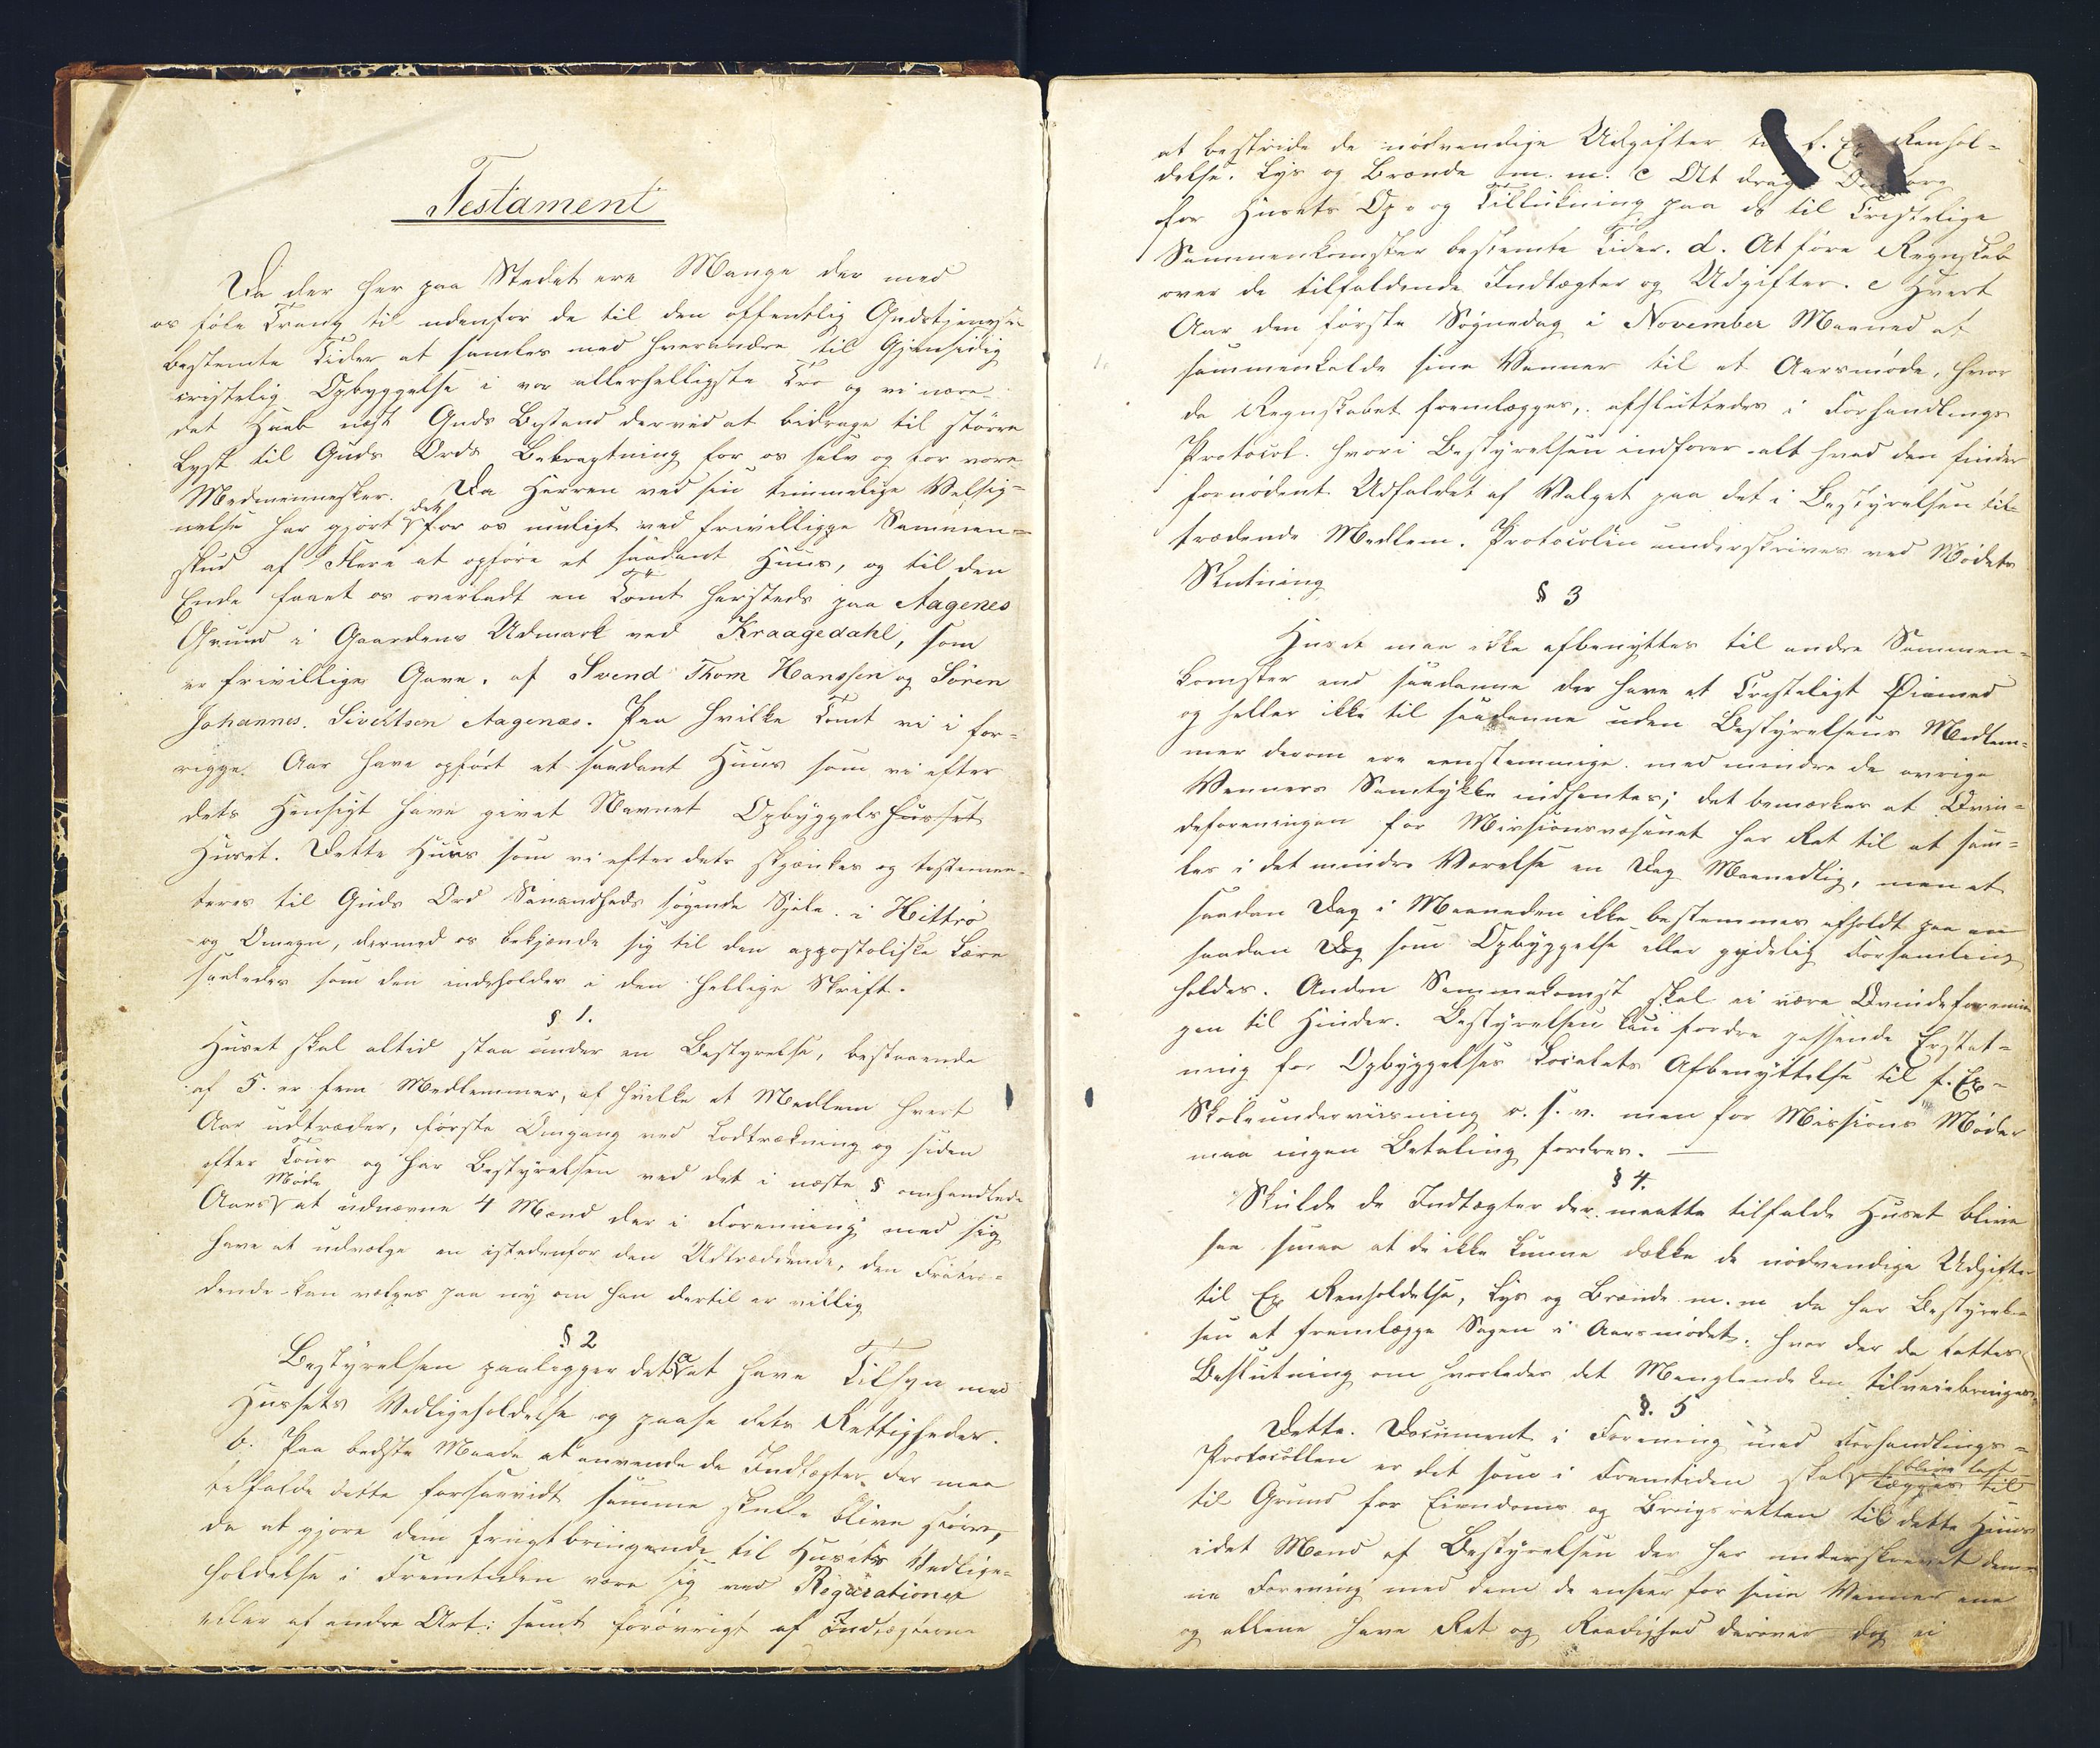 Testament
Da der her paa Stedet ere Mange der med
os føle Trang til udenfor de til den offentlig Gudstjeneste
bestemte Tider at samles med hverandre til Gjensidig
cristelig Opbyggelse i vor allerhelligste Tro og vi nære
det Haab næst Guds Bistand derved at bidrage til større
Lyst til Guds Ords Betragtning for os selv og for vore
Medmennesker. Da Herren ved sin timmelige Velsig-
nelse har gjort det for os muligt ved frivilligge Sammen-
skud af Flere at opføre et saadant Huus, og til den
Ende faaet os overladt en Tomt hersteds paa Aagenes
Grund i Gaardens Udmark ved Kraagedahl, som
er frivillige Gave. af Svend Thom Hanssen og Søren
Johannes. Sivertsen Aagenæs. Paa hvilke Tomt vi i for-
rigge Aar have opført et saadant Huus som vi efter
dets Hensigt have givet Navnet Opbyggelshusset
Huset. Dette Huus som vi efter dets skjænkes og testamen-
teres til Guds Ord Sanandheds søgende Sjele. i Hitterø
og Omegn, dermed os bekjende sig til den appostoliske Lære
saaledes som den indeholdes i den hellige Skrift.
§ 1.
Huset skal altid staa under en Bestyrelse, bestaaende
af 5. er fem Medlemmer, af hvilke et Medlem hvert
Aar udtræder, første Omgang ved Lodtrækning og siden
efter Tour og har Bestyrelsen ved det i næste § omhandlede
Aars Møde at udnævne 4 Mænd der i Forening med sig
have at udvælge en istedenfor den Udtræddende, den Fratræ-
dende kan vælges paa ny om han dertil er villig
§ 2
Bestyrelsen paaligger det a at have Tilsyn med
Hussets Vedligeholdelse og paase dets Rettigheder.
b. Paa bedste Maade at anvende de Indtægter der maa
tilfalde dette forsaavidt samme skulle blive større,
da at gjøre dem frugtbringende til Husets Vedlige-
holdelse i Fremtiden være sig ved Reparationer
eller af andre Art: samt forøvrigt af Indtægterne
at bestride de nødvendige Udgifter til f. Ex Renhol-
delse. Lys og Brænde m. m. c At drage Omsorg
for Husets Op- og Tillukning paa de til Cristelige
Sammenkomster bestemte Tider. d. At føre Regnskab
over de tilfaldende Indtægter og Udgifter. e Hvert
Aar den første Søgnedag i November Maaned at
sammenkalde sine Venner til et Aarsmøde, hvor
da Regnskabet fremlægges, afsluttedes i Forhandlings
Protocol. hvori Bestyrelsen indfører alt hvad den finder
fornødent. Udfaldet af Valget paa det i Bestyrelsen til-
trædende Medlem. Protocolen underskrives ved Mødets
Slutning
§ 3
Huset maa ikke afbenyttes til andre Sammen-
komster end saadanne der have et Cristeligt Øiemed
og heller ikke til saadanne uden Bestyrelsens Medlem-
mer derom ere eenstemmige. med mindre de øvrige
Venners Samtykke indhentes; det bemærkes at Qvin-
deforeningen for Missionsvæsenet har Ret til at sam-
les i det mindre Værelse en Dag Maanedlig, men at
saadan Dag i Maaneden ikke bestemmes afholdt paa en
saadan Dag som Opbyggelse eller gudelig Forsamling
holdes. Anden Sammekomst skal ei være Qvindeforenin
gen til Hinder. Bestyrelsen kan fordre passende Erstat-
ning for Opbyggelses Localets Afbenyttelse til f. Ex-
Skoleunderviisning o. s. v. men for Missions Møder
maa ingen Betaling fordres.
§ 4.
Skulde de Indtægter der maatte tilfalde Huset blive
saa smaa at de ikke kunne dække de nødvendige Udgifter
til Ex Renholdelse, Lys og Brænde m. m da har Bestyrel-
sen at fremlægge Sagen i Aarsmødet. hvor der da fattes
Beslutning om hvorledes det Manglende kan tilveiebringes.
§. 5
Dette. Document i Forening med Forhandlings-
Protocollen er det som i Fremtiden skal blive lagt lægges til
til Grund for Eiendoms og Brugsretten til dette Huus
idet Mænd af Bestyrelsen der har underskrevet den-
ne Forening med dem de anseer for sine Venner ene
og allene have Ret og Raadighed derover dog ei